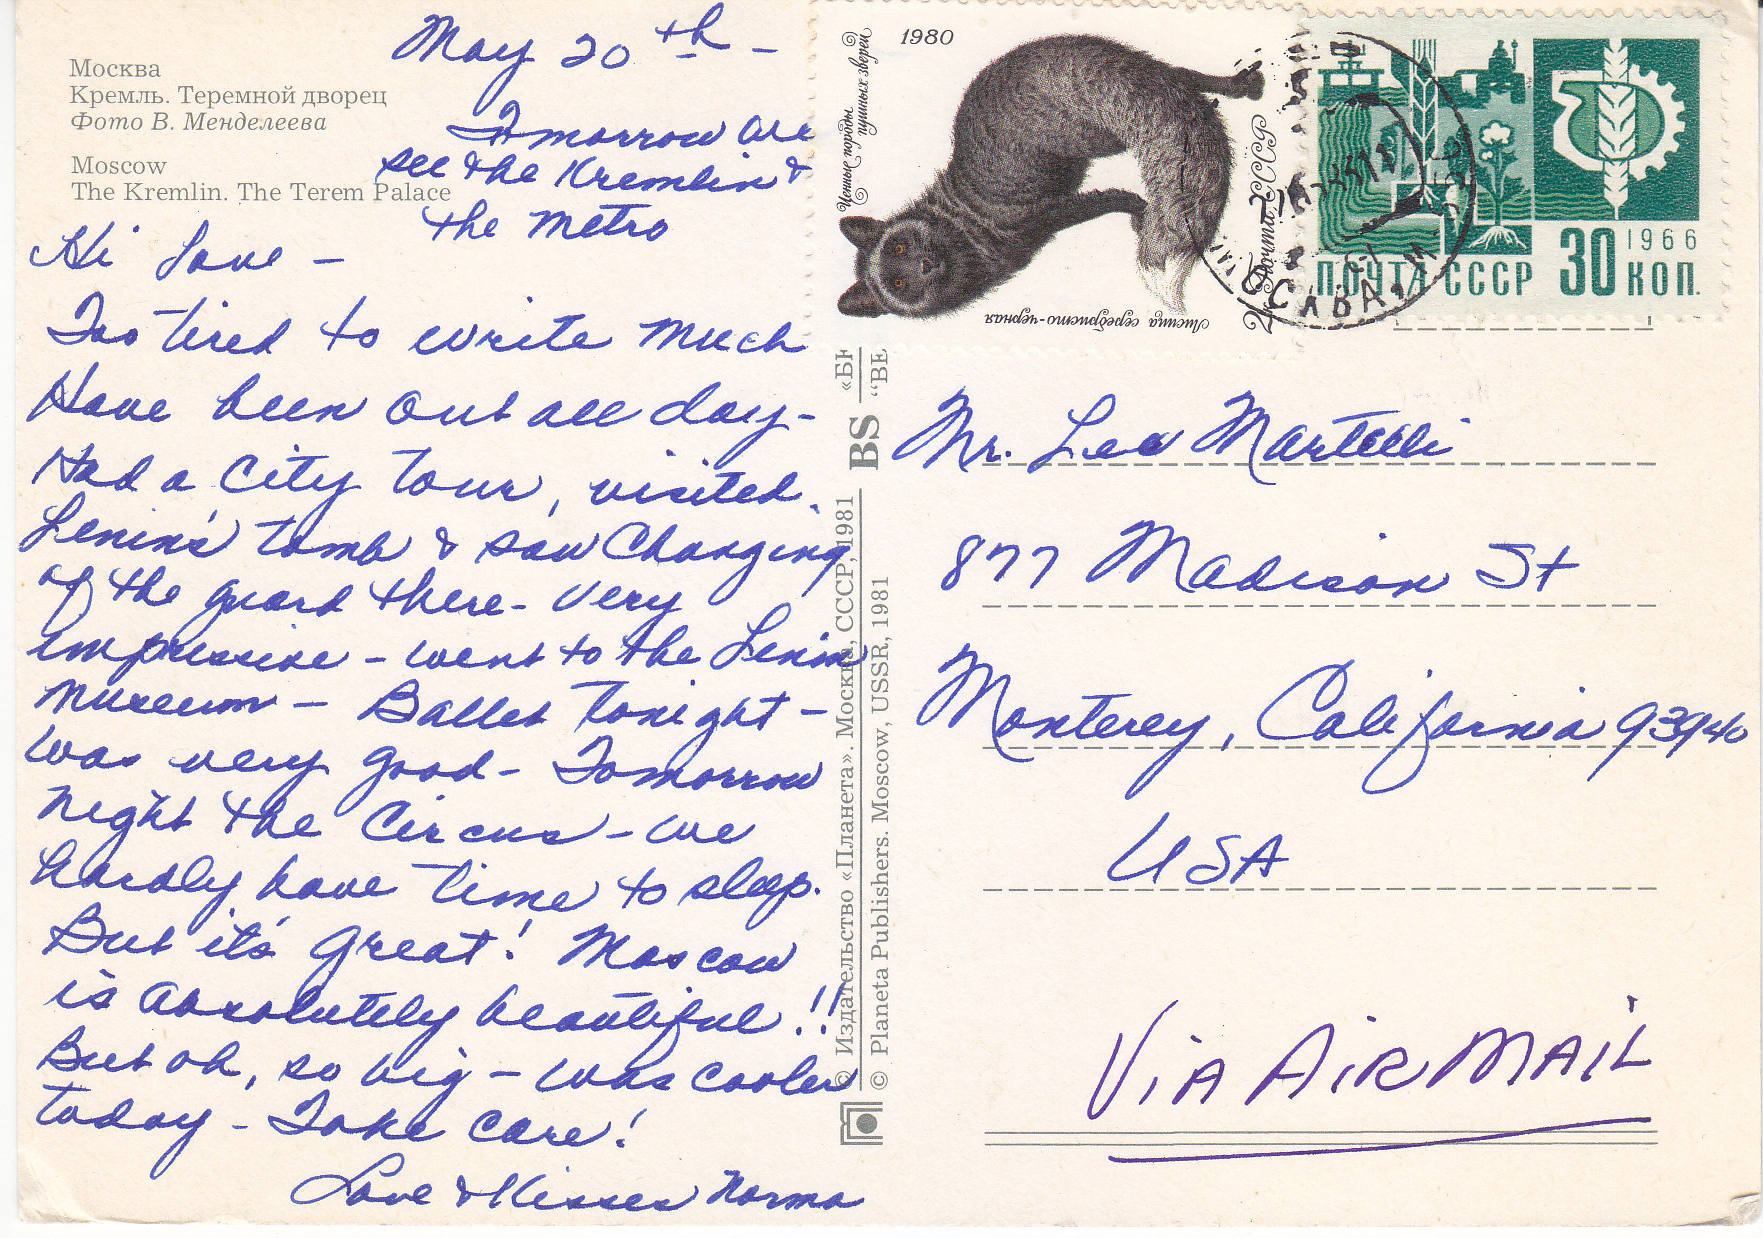 Москва
Кремль. Теремной дворец
Фото В. Менделеева
Moscow
The Kremlin. The Terem Palace
May 20th –
Tomorrow we
see the Kremlin &
the Metro
Hi Love –
Too tired to write much
Have been out all day –
Had a City Tour, visited
Lenin's tomb & saw Changing
of the guard there – very
impressive – went to the Lenin
Museum – Ballet tonight –
was very good – Tomorrow
night the Circus – we
hardly have time to sleep.
But it's great! Moscow
is absolutely beautiful!!
But oh, so big – was cooler
today – Take care!
Love & Kisses Norma
© Издательство «Планета». Москва, СССР, 1981
© Planeta Publishers. Moscow, USSR, 1981
BS
1980
Ценные породы
пушных зверей
Лисица серебристо-черная
Почта СССР
ПОЧТА СССР 30 КОП.
1966
Mr. Leo Martelli
877 Madison St
Monterey, California 93940
USA
VIA AIR MAIL